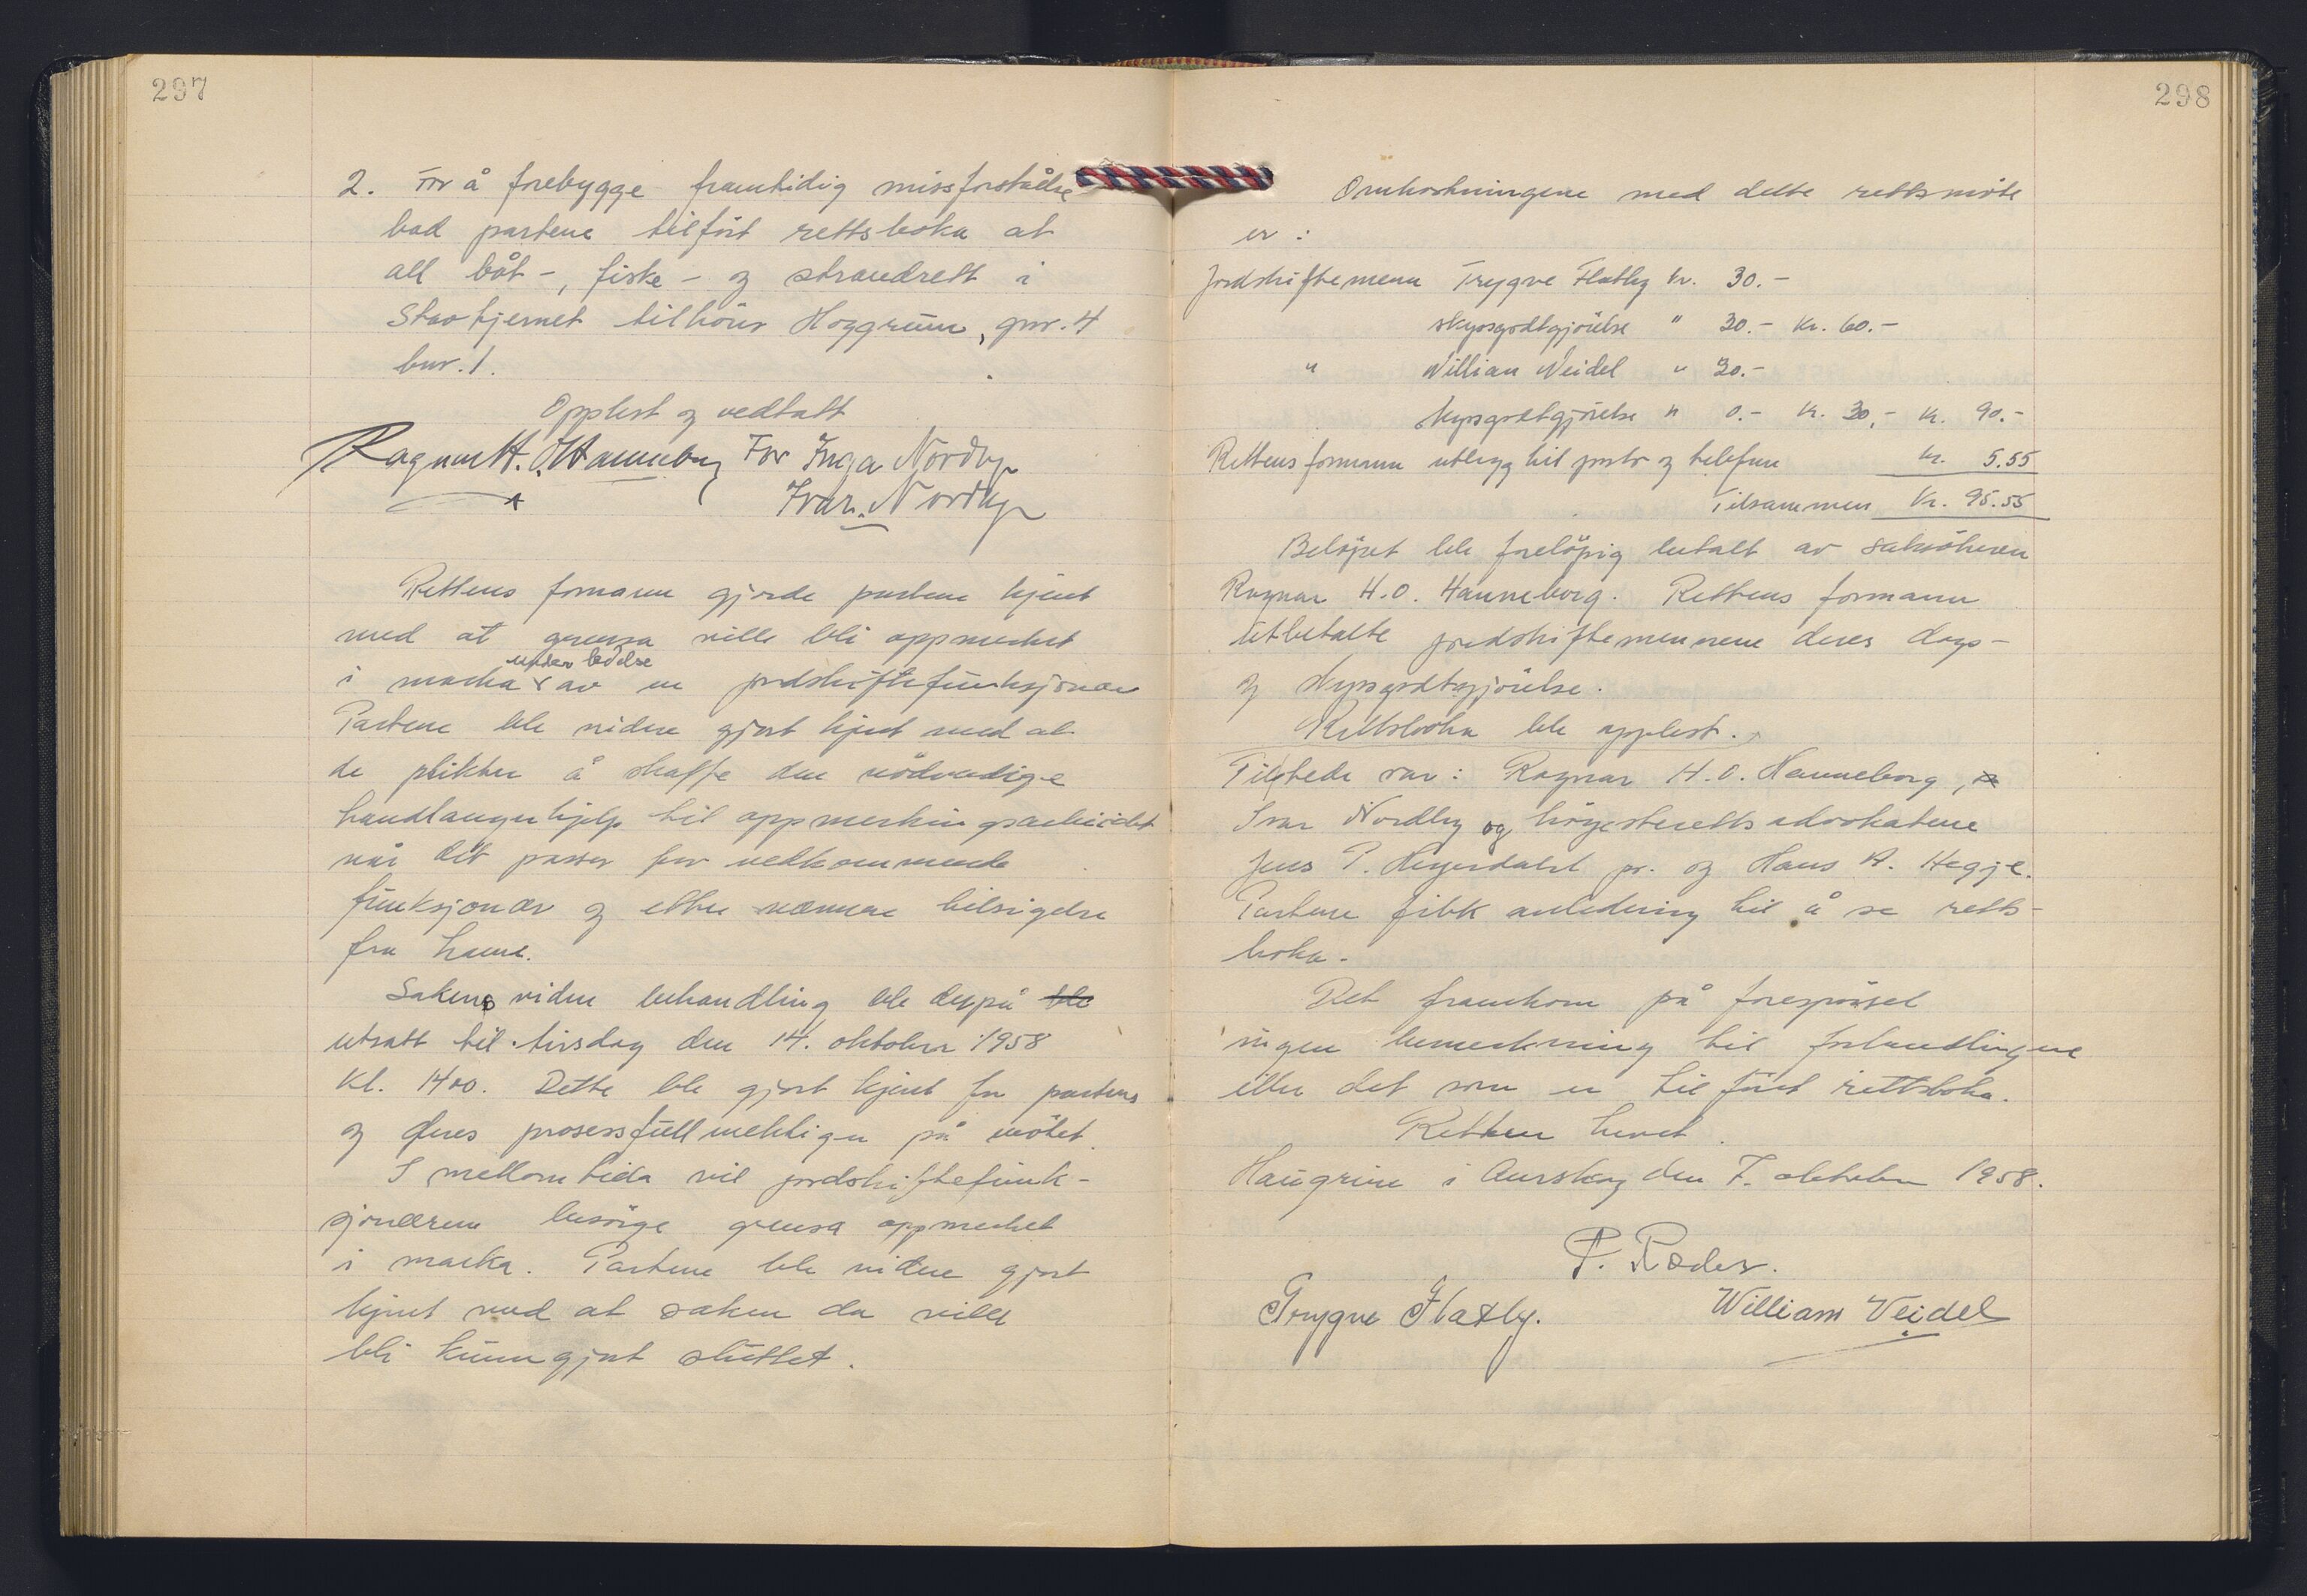 297
2. For å forebygge framtidig missforståelse
bad partene tilført rettsboka at
all båt-, fiske- og strandrett i
Stastjernet tilhører Haggrim, gnr. 4
bnr. 1.
Opplest og vedtatt
Ragnar H. O. Hanneborg For Inga Nordby
Ivar Nordby
Rettens formann gjorde partene kjent
med at grensa ville bli oppmerket
under ledelse
i marka av en jordskiftefunksjonær
Partene ble videre gjort kjent med at
de plikter å skaffe den nödvendige
handlangerhjelp til oppmerkingsarbeidet
når det passer for vedkommende
funksjonær og etter nærmere tilsigelse
fra ham.
Sakens videre behandling ble derpå ble
utsatt til tirsdag den 14. oktober 1958
kl. 1400. Dette ble gjort kjent for partene
og deres prosessfullmektiger på mötet.
I mellomtida vil jordskiftefunk-
sjonæren besörge grensa oppmerket
i marka. Partene ble videre gjort
kjent med at saken da ville
bli kunngjort sluttet.
298
Omkostningene med dette rettsmöte
er:
Jordskiftemenn Trygve Flatby kr. 30.-
skyssgodtgjörelse " 30.- Kr. 60.-
" William Veidel " 30.-
skyssgodtgjörelse " 0.- Kr. 30.- Kr. 90.-
Rettens formann utlegg til porto og telefon kr. 5.55
Tilsammen Kr. 95.55
Belöpet ble forelöpig betalt av saksökeren
Ragnar H.O. Hanneborg. Rettens formann
utbetalte jordskiftemennene deres dags-
og skyssgodtgjörelse.
Rettsboka ble opplest.
Tilstede var: Ragnar H.O. Hanneborg,
Ivar Nordby og höyesterettsadvokatene
Jens P. Heyerdahl jr. og Hans A. Hegje.
Partene fikk anledning til å se retts-
boka.
Det framkom på forespörsel
ingen bemerkning til forhandlingene
eller det som er tilfört rettsboka.
Retten hevet.
Haugrim i Aurskog den 7. oktober 1958.
P. Ræder.
Trygve Flatby. William Veidel